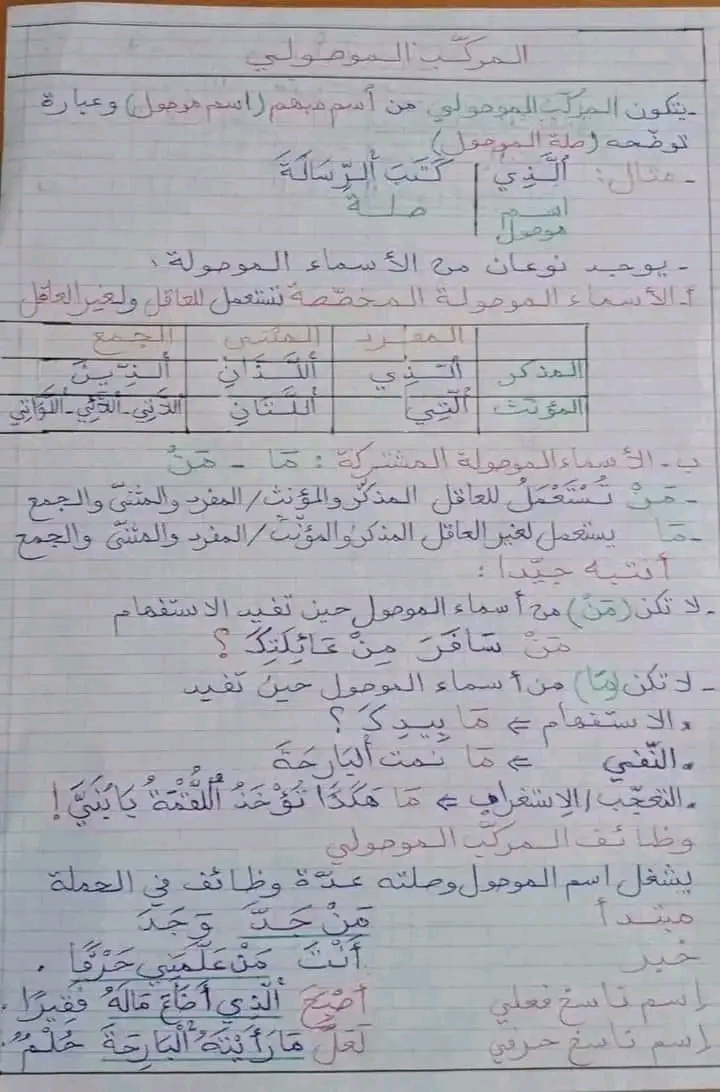 المركّب الموصولي
- يتكون المركّب الموصولي من أسم مبهم (اسم موصول) وعبارة
توضّحه (صلة الموصول)
- مثال: ألَّذِي | كَتَبَ ألرِّسَالَةَ
اسم موصول | صلة
- يوجد نوعان من الأسماء الموصولة:
أ- الأسماء الموصولة المخصّصة تستعمل للعاقل ولغير العاقل
المفرد | المثنى | الجمع
المذكر | ألَّذِي | أللَّذَانِ | ألذِينَ
المؤنث | ألَّتِي | أللَّتَانِ | اللاَّتِي - اللاَّئِي - اللَّوَاتِي
ب- الأسماء الموصولة المشتركة: مَا - مَنْ
- مَنْ تُسْتَعْمَلُ للعاقل المذكّر والمؤنث/ المفرد والمثنّى والجمع
- مَا يستعمل لغير العاقل المذكر والمؤنّث/ المفرد والمثنّى والجمع
أنتبه جيّدا:
- لا تكن (مَنْ) من أسماء الموصول حين تفيد الاستفهام
مَنْ سَافَرَ مِنْ عَائِلَتِكَ؟
- لا تكن (مَا) من أسماء الموصول حين تفيد
• الاستفهام ⇐ مَا بِيَدِكَ؟
• النّفي ⇐ مَا نمت ألبَارِحَةَ
• التعجّب/ الإستغراب ⇐ مَا هَكَذَا تُؤْخَذُ أللُّقْمَةُ يَا بُنَيَّ!
وظائف المركّب الموصولي
يشغل اسم الموصول وصلته عدّة وظائف في الجملة
مبتدأ مَنْ جَدَّ وَجَدَ
خبر أَنْتَ مَنْ عَلَّمَنِي حَرْفًا.
إسم ناسخ فعلي أصْبَحَ ألَّذِي أضَاعَ مَالَهُ فَقِيرًا.
إسم ناسخ حرفي لَعَلَّ مَا رَأَيْتَهُ ألْبَارِحَةَ حُلْمٌ.